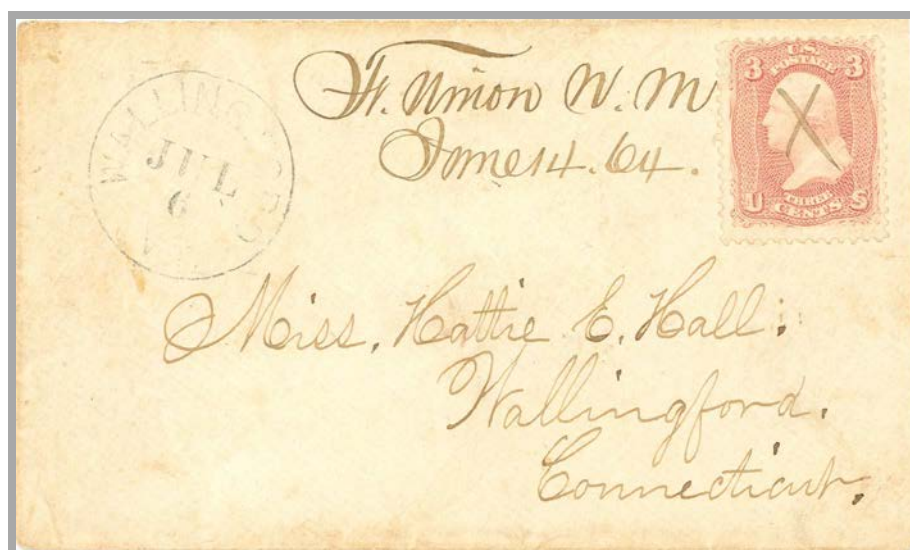 Ft. Union N. M
June 14. 64.
WALLINGFORD
JUL
6
U.S.
POSTAGE
3 3
THREE
U CENTS S
Miss. Hattie E. Hall.
Wallingford.
Connecticut.